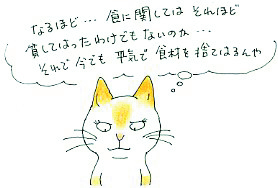 なるほど… 食に関しては それほど
貧してはったわけでもないのか…
それで今でも 平気で食材を捨てはるんや